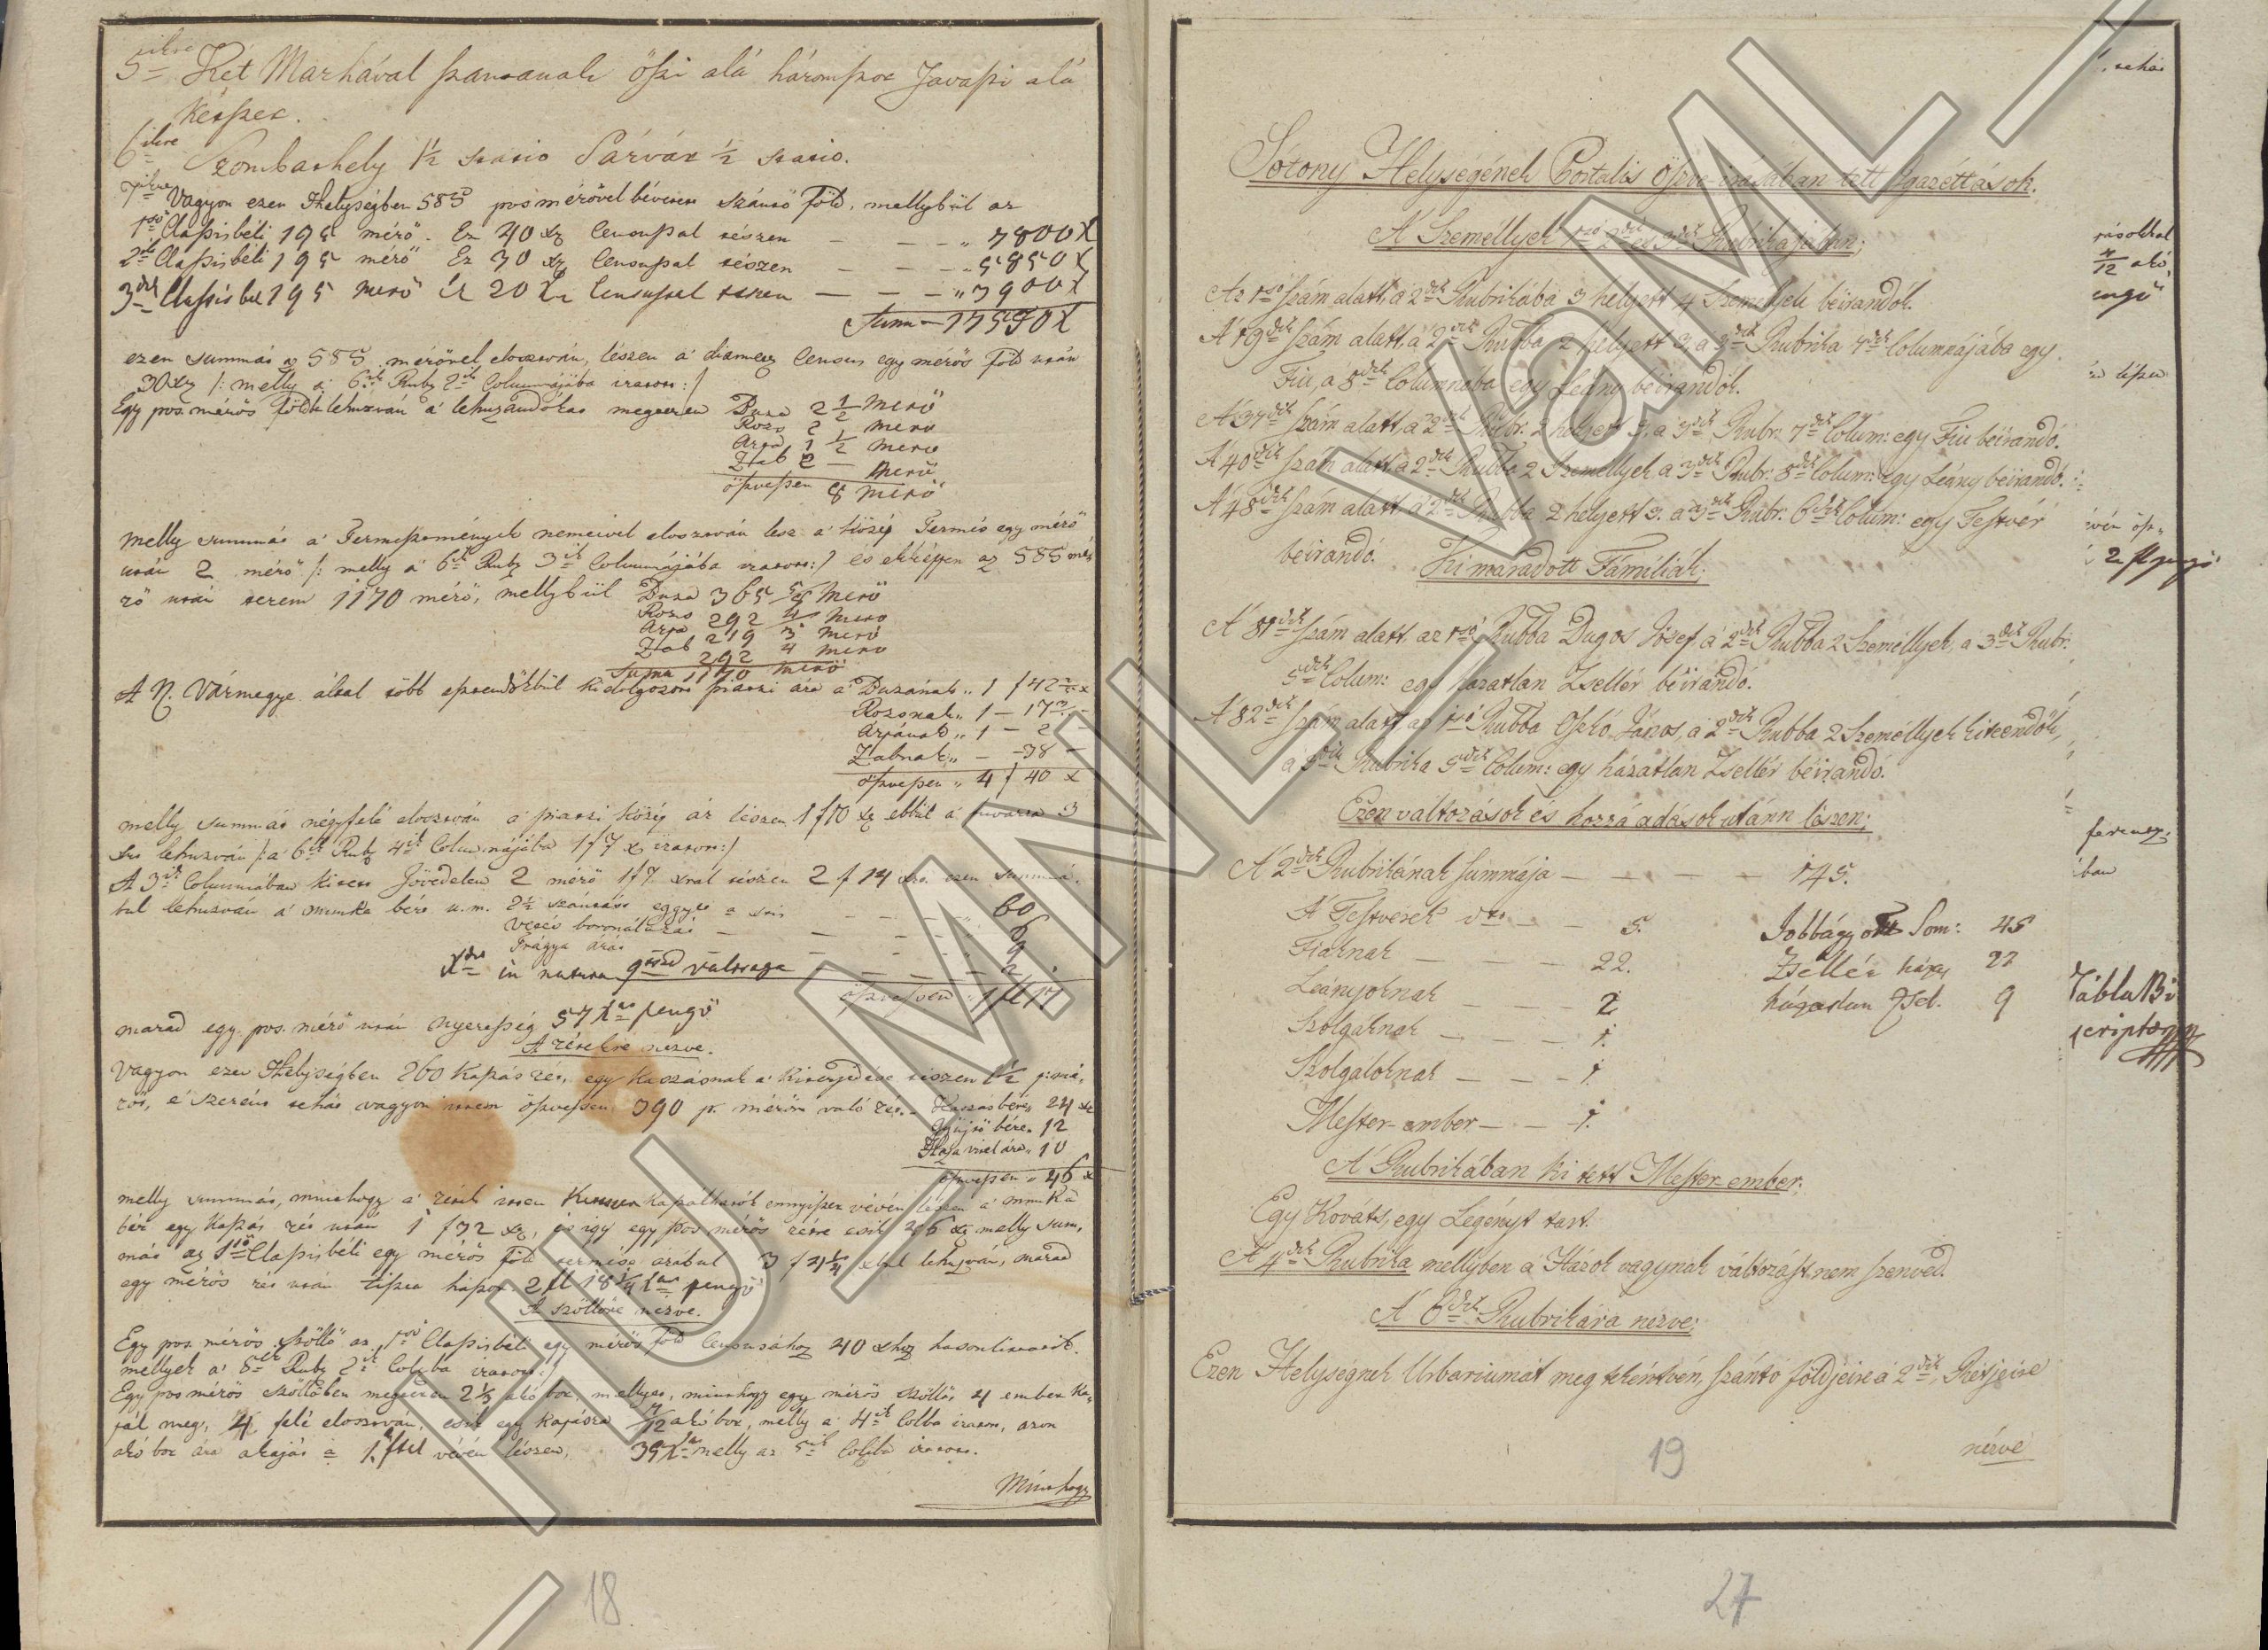 5ikre Két Marhával szantanak őszi alá háromszor Javaszi alá
kétszer.
6ikra Szombathely 1½ statio Sárvár ½ statio.
7ikre Vagyon ezen Helységben 585 pos mérővel bévetett szántó Föld, mellybül az
1ső Classisbéli 195 mérő Ez 40 xr Censussal tészen — — — „ 7800 X
2ik Classisbéli 195 mérő Ez 30 xr Censussal tészen — — — „ 5850 X
3dik Classisbeli 195 merő Ez 20 Xr Censussal teszen — — — „ 3900 X
Suma — 17550 X
ezen summát az 585 mérővel elosztván, lészen a' diametz Census egy mérős Föld után
30 xr /: melly a' 6ik Rub 2ik Columnájába iratott :/
Egy pos. mérős földtk lehuzván a' lehuzandókat megterem Buza 2½ Merő
Rozs 2 merő
Arpa 1½ merő
Zab 2 — Merő
öszvessen 8 merő
melly summát a' Termesztmények nemeivel elosztván lesz a' közép Termés egy mérő
után 2 mérő /: melly a' 6ik Rub 3ik Columnájába iratott :/ és eképpen az 585 mé
rő után terem 1170 mérő, mellybül Buza 365 5/8 Merő
Rozs 292 4 Mero
Arpa 219 3 Merő
Zab 292 4 Mero
Suma 1170 merő
A N. Vármegye által több esztendőkbül kidolgozott piatzi ára a' Buzának „ 1 f 42 x
Rozsnak „ 1 — 17
Arpának „ 1 — 2 —
Zabnak „ — 38 —
öszvessen „ 4 f 40 x
melly summát négyfelé elosztván a' piatzi közép ár lészen 1 f 10 xr ebbül a' fuvarra 3
xrt lehuzván /: a' 6ik Rub 4ik Columnájába 1 f 7 x iratott :/
A 3ik Columnában kitett Jövedelem 2 mérő 1 f 7 xral tészen 2 f 14 xrt. ezen summá,
bul lehuzván a' munka bért u.m. 2½ szántást eggyre — — — „ 60
Vetés boronálását — — — „ 6
Trágya árát — — — „ 9
in natura 9ted váltsága — — — 2
öszvessen „ 1 fl 17
marad egy pos. mérő után nyereség 57 Xr pengő
A rétekre nézve.
Vagyon ezen Helységben 260 Kaszás rét, egy kaszásnak a' kiterjedése tészen 1½ p: mé,
rőt, e' szerént tehát vagyon öszvessen 390 p. mérőre való rét. — Kaszás bére „ 24 xr
Gyüjtő bére „ 12
Haza vitel ára „ 10
öszvessen „ 46 x
melly summát, minthogy a' rétek itten kaszáltatók ennyiszer vévén lészen a' munka
bér egy kaszás rét után 1 f 32 xr, és igy egy pos mérős rétre esik xr melly sum,
mát az 1ső Classisbéli egy mérős föld termése árábul 3 f xrbul lehuzván, marad
egy mérős rét után tiszta haszon 2 fl 18¾ Xr pengő
A szöllőre nézve.
Egy pos mérős szöllő az 1ső Classisbéli egy mérős föld Censusához 40 xhoz hasonlittatik.
mellyek a' 8ik Rub 2ik Colpba iratott :/
Egy pos mérős szöllőben megterem 2⅓ akó bor, mellyet, minthogy egy mérős szöllőt 4 ember ka,
pál meg, 4 felé elosztván, esik egy kapásra 7/12 akó bor, melly a' 4ik Colba iratott, azon
akó bor ára akóját a 1 ftal vévén lészen, 35 Xr melly az 5ik Colpba iratott.
Minthogy
18.
Sótony Helységének Portális Öszve-irásában tett Igazéttások.
A' Személlyek 1ső 2dik és 3dik Rubrikajában;
Az 1ső szám alatt, a' 2dik Rubrikába 3 helyett 4 Személlyek béirandók.
A' 19dik szám alatt, a' 2dik Rubba 2 helyett 3, a' 3dik Rubrika 7dik Columnájába egy
Fiú, a' 8dik Columnába egy Leány béirandók.
A' 37dik szám alatt, a' 2dik Rubr: 2 helyett 3, a' 3dik Rubr: 7dik Colum: egy Fiu béirandó.
A' 40dik szám alatt, a' 2dik Rubba 2 Személlyek, a' 3dik Rubr: 8dik Colum: egy Leány béirandó.
A' 48dik szám alatt, a' 2dik Rubba 2 helyett 3. a' 3dik Rubr: 6dik Colum: egy Testvér
béirandó.
Ki maradott Famíliák;
A' 81dik szám alatt, az 1ső Rubba Dugos Jósef, a' 2dik Rubba 2 Személlyek, a' 3dik Rubr:
5dik Colum: egy házatlan Zsellér béirandó.
A' 82dik szám alatt, az 1ső Rubba Oskó János, a' 2dik Rubba 2 Személlyek kiteendők,
a' 3dik Rubrika 5dik Colum: egy házatlan Zsellér béirandó.
Ezen változások és hozzá adások utánn lészen;
A' 2dik Rubrikának summája — — — — 145.
A' Testverek — — 5. Jobbágyok Som: 45
Fiaknak — — — 22. Zsellér házas 27
Leányoknak — — — 2 házatlan Zsel. 9
Szolgáknak — — — 1.
Szolgáloknak — — — 1.
Mester-ember — — 1.
A' Rubrikában ki tett Mester ember;
Egy Kováts, egy Legényt tart.
A' 4dik Rubrika mellyben a' Házok vagynak változást nem szenved.
A' 6dik Rubrikára nézve;
Ezen Helységnek Urbariumát meg tekéntvén, szántó földjeire a' 2dik, Rétjeire
nézve
19
27
, tehát
rásokkal
4/12 akó,
engő
tiszta
vévén ösz,
2 fl pengő
ferencz;
ában
Tábla Bi
scripto
HU MNL VaML